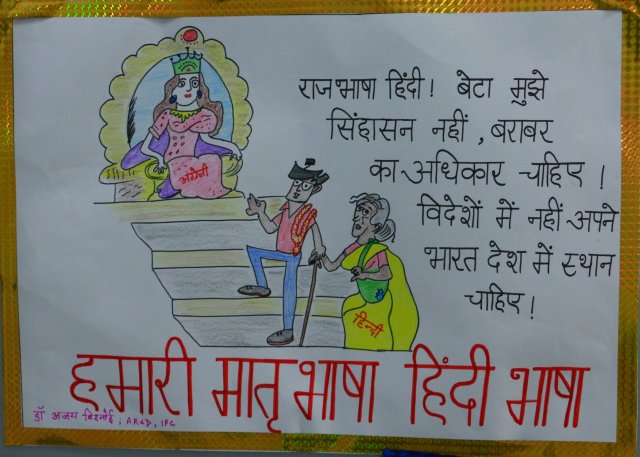 राजभाषा हिंदी! बेटा मुझे
सिंहासन नहीं, बराबर
का अधिकार चाहिए!
विदेशों में नहीं अपने
भारत देश में स्थान
चाहिए!
अंग्रेजी
हिन्दी
हमारी मातृभाषा हिंदी भाषा
डॉ अजय विश्नोई; AR&D, IPC